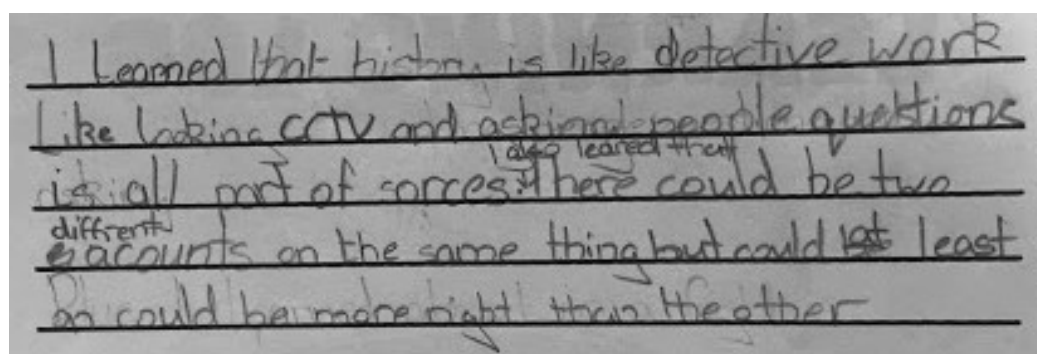 I Learned that history is like detective work
Like looking CCTV and asking people quektions
is all part of sorces. I also leared that There could be two
diffrent acounts on the same thing but could least
an could be more right than the other